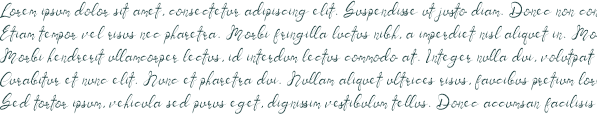 Lorem ipsum dolor sit amet, consectetur adipiscing elit. Suspendisse ut justo diam. Donec non con
Etiam tempor vel risus nec pharetra. Morbi fringilla luctus nibh, a imperdiet nisl aliquet in. Mo
Morbi hendrerit ullamcorper lectus, id interdum lectus commodo at. Integer nulla dui, volutpat
Curabitur et nunc elit. Nunc et pharetra dui. Nullam aliquet ultrices risus, faucibus pretium lor
Sed tortor ipsum, vehicula sed purus eget, dignissim vestibulum tellus. Donec accumsan facilisis